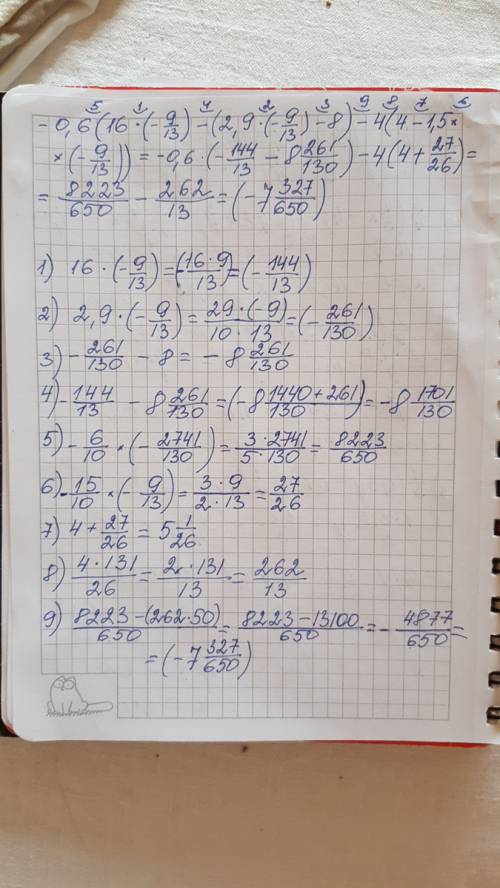 5 1 4 2 3 9 8 7 6
-0,6(16·(-9/13)-(2,9·(-9/13)-8)-4(4-1,5×
×(-9/13))=-0,6·(-144/13-8 261/130)-4(4+27/26)=
=8223/650-262/13=(-7 327/650)
1) 16·(-9/13)=(-16·9/13)=(-144/13)
2) 2,9·(-9/13)=29·(-9)/10·13=(-261/130)
3) -261/130-8=-8 261/130
4) -144/13-8 261/130=(-8 1440+261/130)=-8 1701/130
5) -6/10×(-2741/130)=3·2741/5·130=8223/650
6) -15/10×(-9/13)=3·9/2·13=27/26
7) 4+27/26=5 1/26
8) 4·131/26=2·131/13=262/13
9) 8223-(262·50)/650=8223-13100/650=-4877/650=
=(-7 327/650)